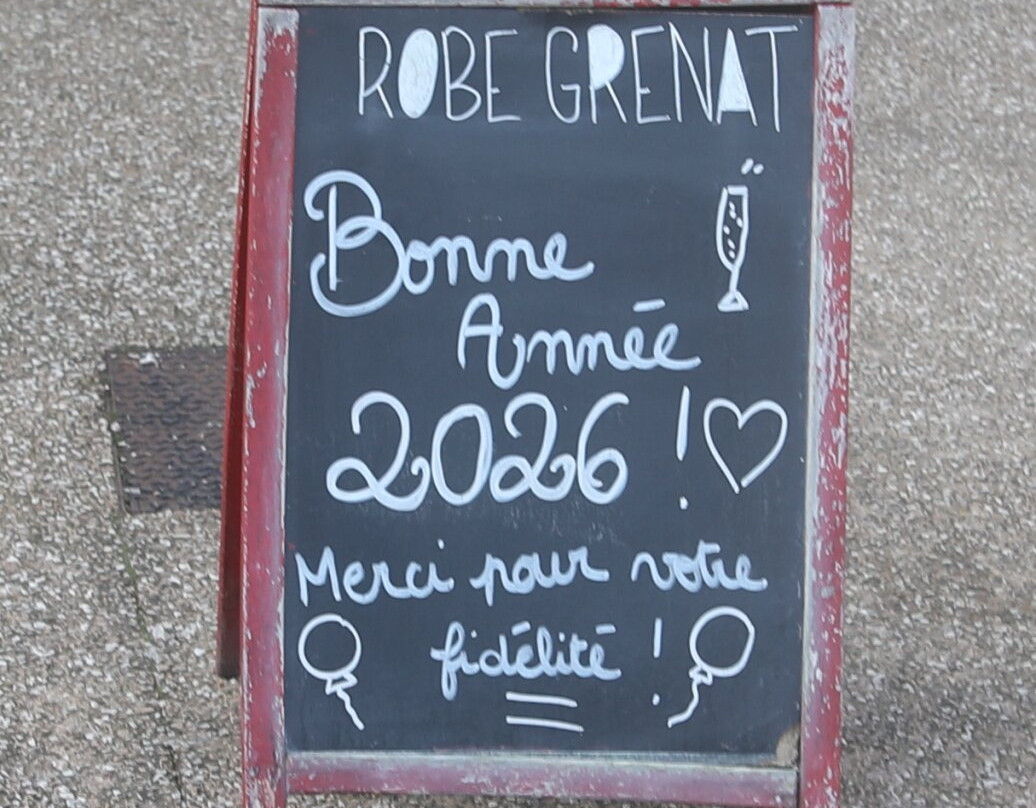 ROBE GRENAT
Bonne
Année
2026 !
Merci pour votre
fidélité !